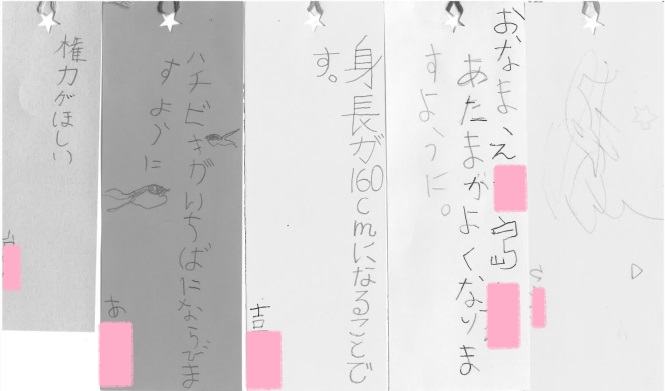 おなまえ
あたまがよくなりま
すように。
身長が160cmになることで
す。
吉
ハチビキがいちばにならびま
すように
あ
権力がほしい